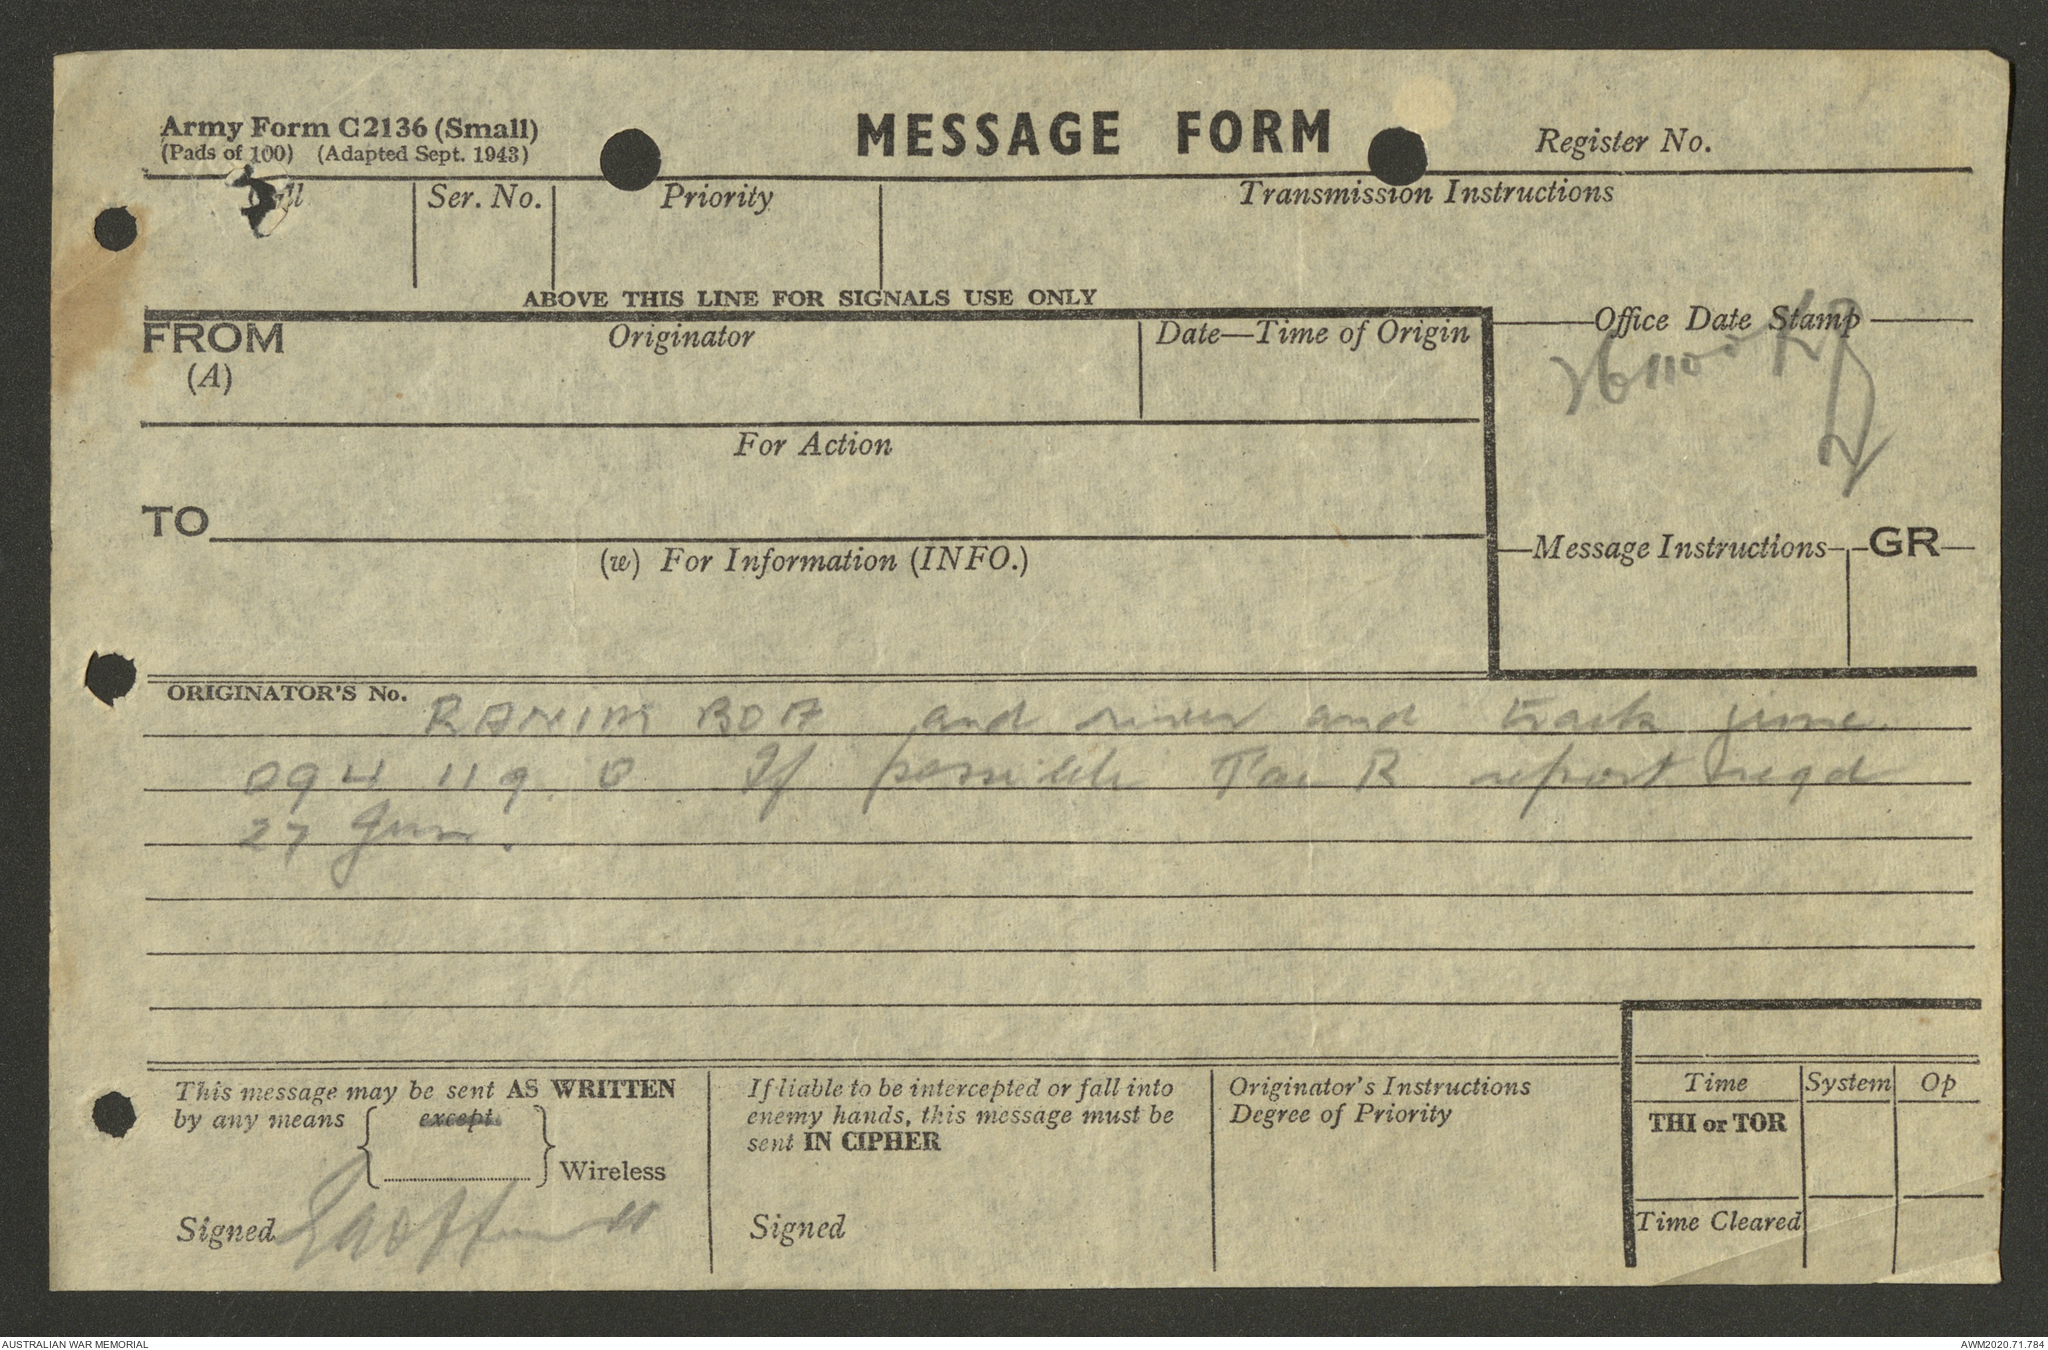 Army Form C2136 (Small)
(Pads of 100) (Adapted Sept. 1943)
MESSAGE FORM
Register No.
Ser. No.
Priority
Transmission Instructions
ABOVE THIS LINE FOR SIGNALS USE ONLY
FROM
(A)
Originator
Date—Time of Origin
Office Date Stamp
261100
For Action
TO
(w) For Information (INFO.)
Message Instructions
GR
ORIGINATOR'S No.
and river and track junc.
094 119. O If possible Tac R report reqd
27 Jun.
This message may be sent AS WRITTEN
by any means
except
Wireless
Signed
If liable to be intercepted or fall into
enemy hands, this message must be
sent IN CIPHER
Signed
Originator's Instructions
Degree of Priority
Time System Op
THI or TOR
Time Cleared
AUSTRALIAN WAR MEMORIAL
AWM2020.71.784